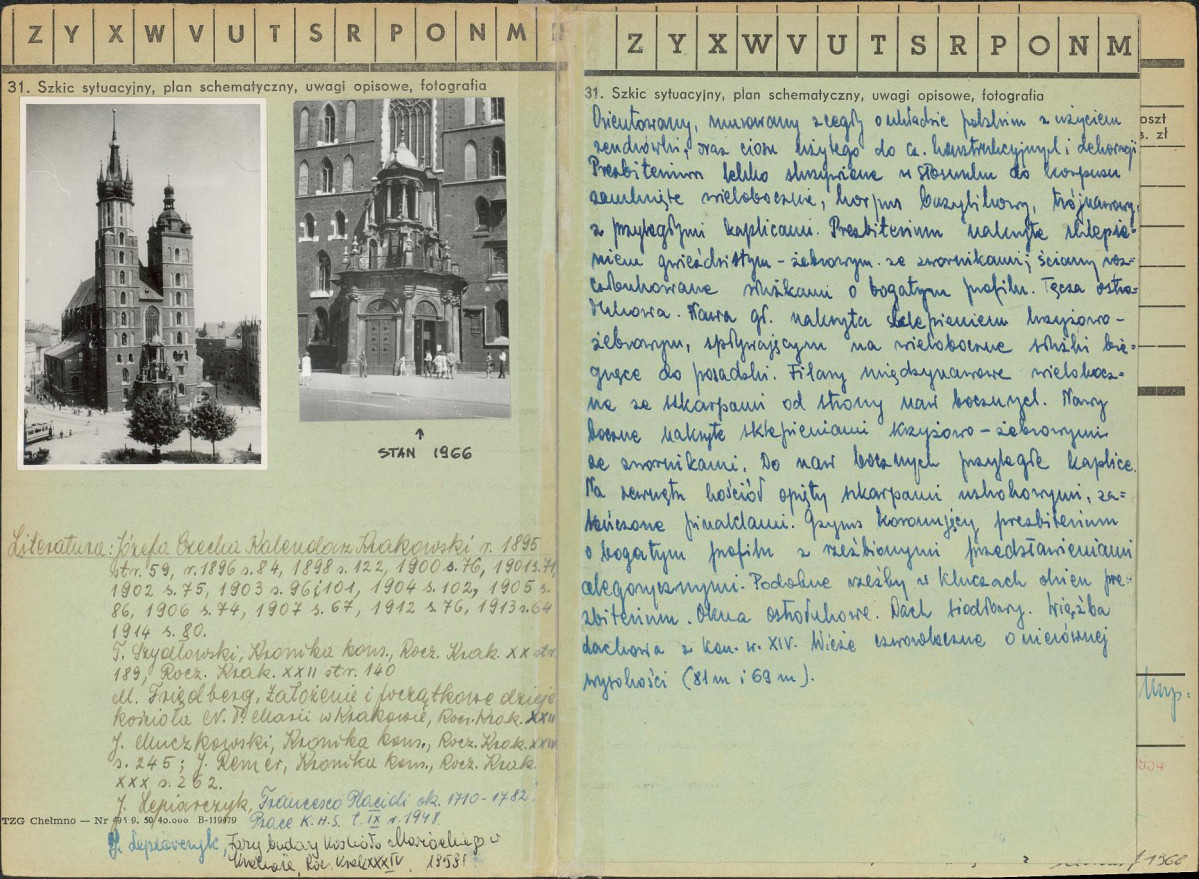 Z Y X W V U T S R P O N M
31. Szkic sytuacyjny, plan schematyczny, uwagi opisowe, fotografia
STAN 1966
Literatura: Józefa Czecha Kalendarz Krakowski r. 1895
str. 59, r. 1896 s. 84, 1898 s. 122, 1900 s. 76, 1901 s. 71
1902 s. 75, 1903 s. 96 i 101, 1904 s. 102, 1905 s.
86, 1906 s. 74, 1907 s. 67, 1912 s 76, 1913 s. 64
1914 s. 80.
T. Szydłowski, Kronika kons., Rocz. Krak. XX str.
189, Rocz. Krak. XXII str. 140
M. Friedberg, Założenie i początkowe dzieje
kościoła N. P. Marii w Krakowie, Rocz. Krak. XXII
J. Muczkowski, Kronika kons., Rocz. Krak.
s. 245; J. Remer, Kronika kons., Rocz. Krak.
XXX s. 262.
J. Lepiarczyk, Francesco Placidi ok. 1710-1782.
Prace K.H.S. t. IX r. 1948
TZG Chełmno — Nr 9. 50 40.000 B-119179
J. Lepiarczyk, Fazy budowy Kościoła Mariackiego w
Krakowie, Roc. Krak XXXIV. 1959
Z Y X W V U T S R P O N M
31. Szkic sytuacyjny, plan schematyczny, uwagi opisowe, fotografia
Orientowany, murowany z cegły o układzie polskim z użyciem
zendrówki, oraz ciosu użytego do cz. konstrukcyjnych i dekoracji
Prezbiterium lekko skrzywione w stosunku do korpusu
zamknięte wielobocznie, korpus bazylikowy, trójnawowy,
z przyległymi kaplicami. Prezbiterium nakryte sklepie-
niem gwieździstym - żebrowym. ze zwornikami; ściany roz-
członkowane służkami o bogatym profilu. Tęcza ostro-
łukowa. Nawa gł. nakryta sklepieniem krzyżowo-
żebrowym, spływającym na wieloboczne służki bie-
gnące do posadzki. Filary międzynawowe wielobocz-
ne ze skarpami od strony naw bocznych. Nawy
boczne nakryte sklepieniami krzyżowo-żebrowymi
ze zwornikami. Do naw bocznych przyległe kaplice.
Na zewnątrz kościół opięty skarpami uskokowymi, za-
kończone pinaklami. Gzyms koronujący prezbiterium
o bogatym profilu z rzeźbionymi przedstawieniami
alegorycznymi. Podobne rzeźby w kluczach okien pre-
zbiterium. Okna ostrołukowe. Dach siodłowy. Więźba
dachowa z kon. w. XIV. Wieże czworoboczne o nierównej
wysokości (81 m i 69 m).
oszt
s. zł
1968